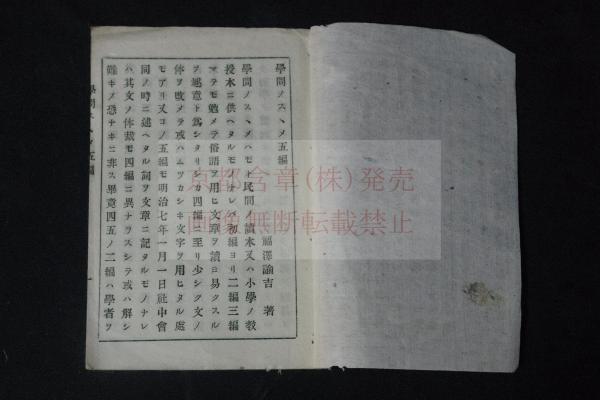 學問ノスヽメ五編
福澤諭吉 著
學問ノスヽメハモト民間ノ讀本又ハ小學ノ敎
授本ニ供ヘタルモノナレバ初編ヨリ二編三編
マデモ勉メテ俗語ヲ用ヒ文章ヲ讀ミ易クスル
ヲ趣意ト爲シタリシガ四編ニ至リ少シク文ノ
体ヲ改メテ或ハムツカシキ文字ヲ用ヒタル處
モアリ又コノ五編モ明治七年一月一日社中會
同ノ時ニ述ヘタル詞ヲ文章ニ記タルモノナレ
ハ其文ノ体裁モ四編ニ異ナラスシテ或ハ解シ
難キノ恐ナキニ非ス畢竟四五ノ二編ハ學者ヲ
學問ノスヽメ五編
一
京都含章(株)発売
画像無断転載禁止